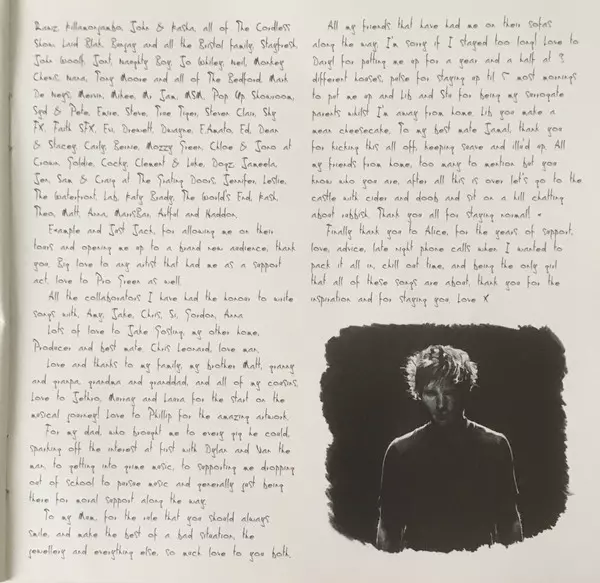 John & Kasha, all of The Cordless
Show, Laid Blak, Benjag and all the Bristol family, Stayfresh,
John Woolf, Jont, Naughty Boy, Jo Whiley, Neil, Monkey,
Chenis, nana, Tony Moore and all of The Bedford, Mark
De Negs, Mervin, Mikee, Mr Jam, MSM, Pop Up Showroom,
Syd & Pete, Emire, Steve, True Tiger, Steven Clair, Sky
FX, Faith SFX, Eri, Drewett, Dwayne, E.Amato, Ed, Dean
& Stacey, Carly, Bernie, Mozzy Green, Chloe & Jono at
Crown, Goldie, Cocky, Clement & Luke, Dogz, Jameela,
Jen, Sam & Craig at The Grating Doors, Jennifer Leslie,
The Waterfront, Lab, Katy Brady, The World's End, Kash,
Theo, Matt, Anna, MarrisBan, Artful and Haddon.
Example and Just Jack, for allowing me on their
tours and opening me up to a brand new audience, thank
you. Big love to any artist that had me as a support
act, love to Pro Green as well.
All the collaborators I have had the honour to write
songs with, Amy, Jake, Chris, Si, Gordon, Anna
Lots of love to Jake Gosling, my other home,
Producer and best mate. Chris Leonard, love man.
Love and thanks to my family, my brother Matt, granny
and granpa, grandma and granddad, and all of my cousins.
Love to Jethro, Murray and Laura for the start on the
musical journey! Love to Phillip for the amazing artwork.
For my dad, who brought me to every gig he could,
sparking off the interest at first with Dylan and Van the
man, to getting into grime music, to supporting me dropping
out of school to pursue music and generally just being
there for moral support along the way.
To my Mum, for the rule that you should always
smile, and make the best of a bad situation, the
jewellery and everything else, so much love to you both.
All my friends that have had me on their sofas
along the way, I'm sorry if I stayed too long! Love to
Daryl for putting me up for a year and a half at 3
different houses, pelse for staying up til 5 most mornings
to put me up and Lib and Stu for being my surrogate
parents whilst I'm away from home. Lib you make a
mean cheesecake. To my best mate Jamal, thank you
for kicking this all off, keeping suave and illa'd up. All
my friends from home, too many to mention but you
know who you are, after all this is over let's go to the
castle with cider and doob and sit on a hill chatting
about rubbish. Thank you all for staying normal!
Finally thank you to Alice, for the years of support,
love, advice, late night phone calls when I wanted to
pack it all in, chill out time, and being the only girl
that all of these songs are about, thank you for the
inspiration and for staying you. Love X